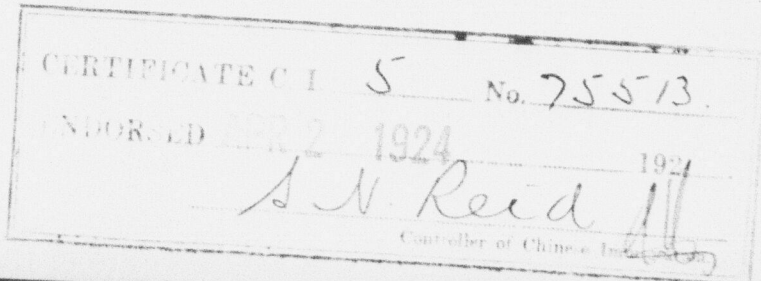 CERTIFICATE C I 5 No. 75513.
ENDORSED APR 2 1924 192
S N. Reid
Controller of Chinese